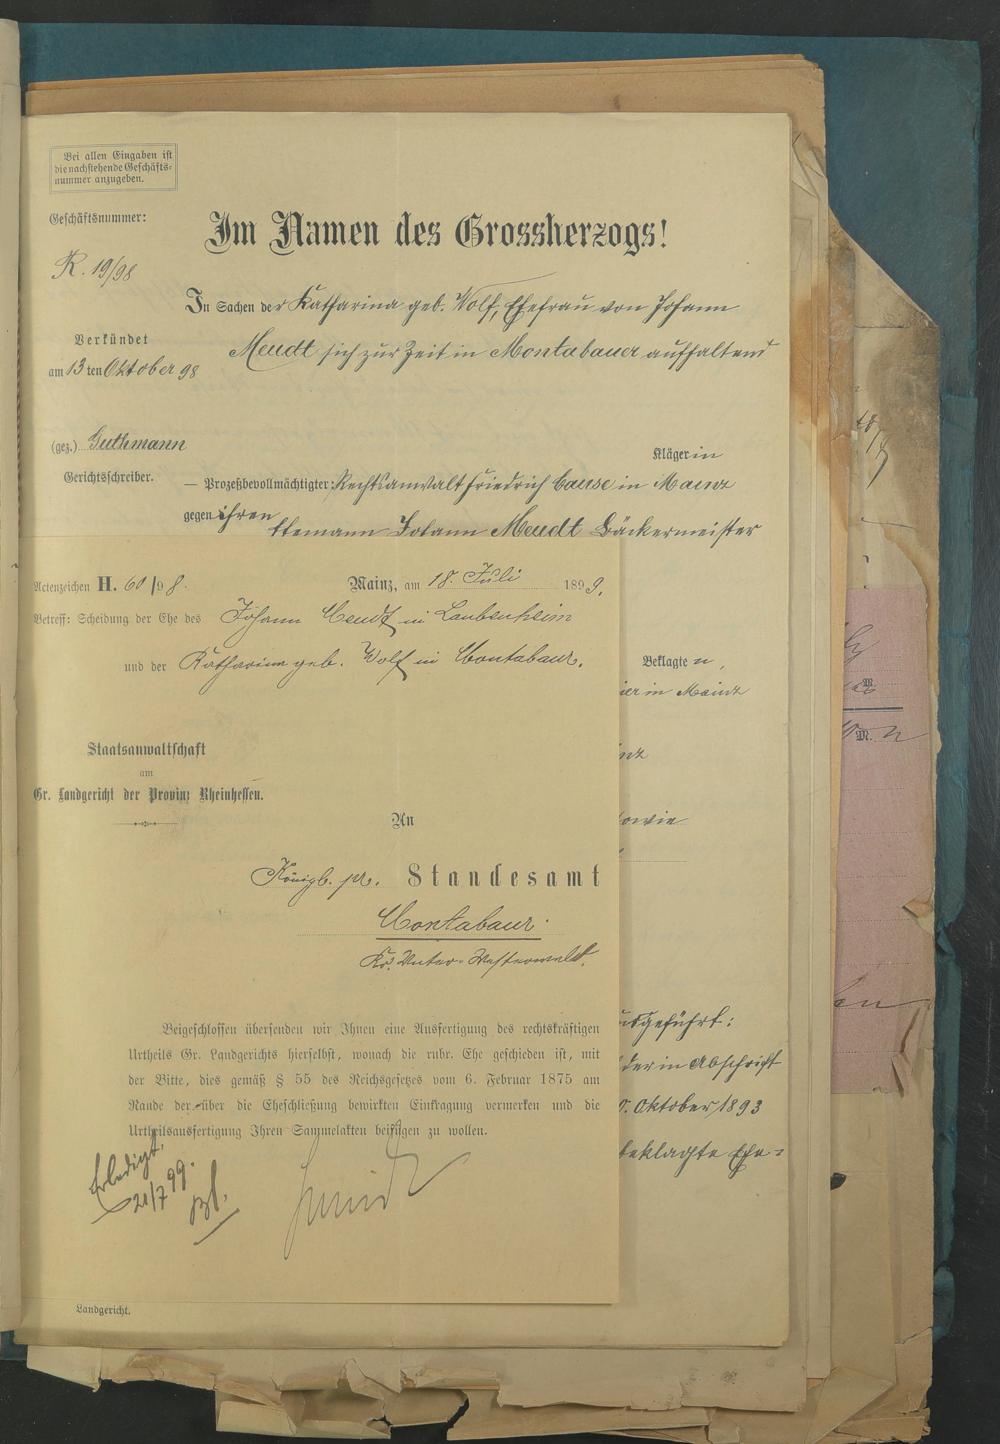 Bei allen Eingaben ist
die nachstehende Geschäfts-
nummer anzugeben.
Geschäftsnummer:
R. 19/98
Im Namen des Grossherzogs!
In Sachen der Katharina geb. Wolf, Ehefrau von Johann
Meudt sich zur Zeit in Montabauer aufhaltend
Verkündet
am 13ten Oktober 98
(gez.) Guthmann
Gerichtsschreiber.
Klägerin
— Prozeßbevollmächtigter: Rechtsanwalt Friedrich in Mainz
gegen ihren
Ehemann Johann Meudt Bäckermeister
Actenzeichen H. 60/98.
Mainz, am 18. Juli 1899.
Betreff: Scheidung der Ehe des Johann Meudt in Laubenheim
und der Katharina geb. Wolf in Montabaur.
Beklagten,
in Mainz
Staatsanwaltschaft
am
Gr. Landgericht der Provinz Rheinhessen.
An
sowie
Königl. pr. Standesamt
Montabaur.
Kr. Unter-Westerwald.
Beigeschlossen übersenden wir Ihnen eine Ausfertigung des rechtskräftigen
Urtheils Gr. Landgerichts hierselbst, wonach die rubr. Ehe geschieden ist, mit
der Bitte, dies gemäß § 55 des Reichsgesetzes vom 6. Februar 1875 am
Rande der über die Eheschließung bewirkten Eintragung vermerken und die
Urtheilsausfertigung Ihren Sammelakten beifügen zu wollen.
ausgeführt:
der in Abschrift
Oktober 1893
beklagte Ehe-
Erledigt.
21/7 99.
Landgericht.
M.
M.